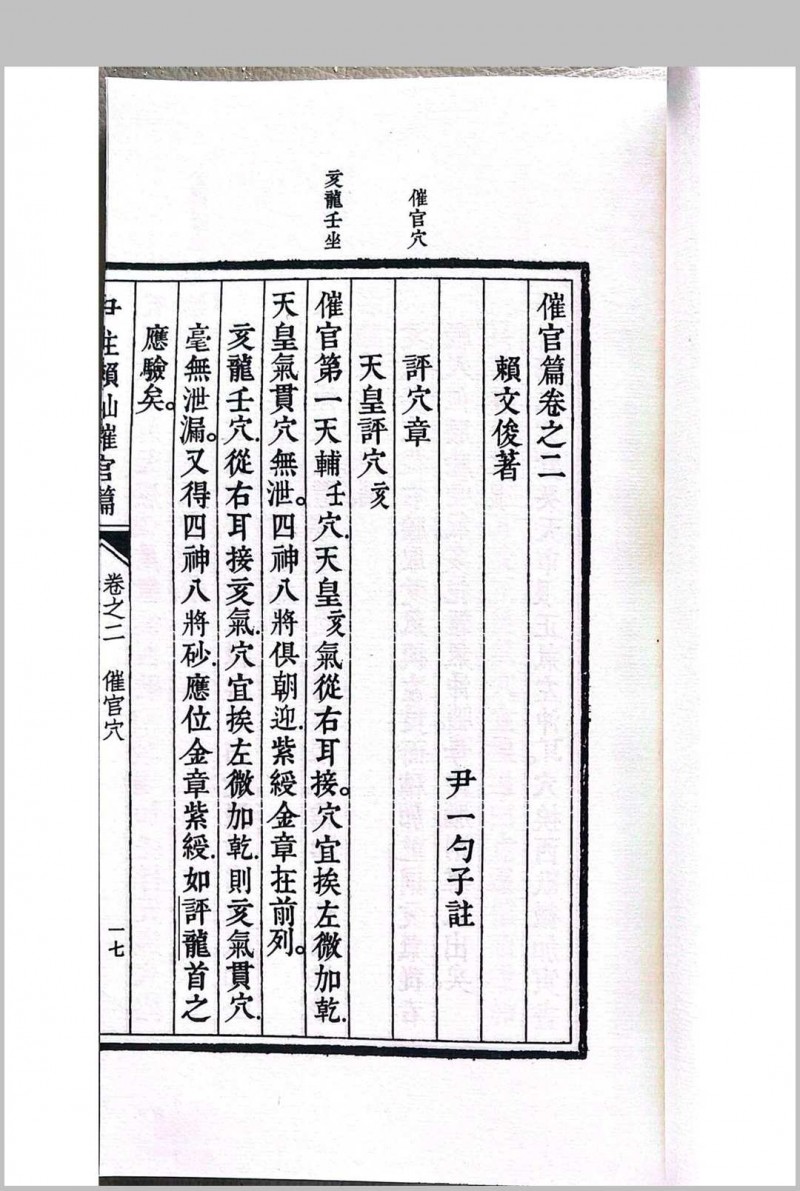 催官穴
亥龍壬坐
催官篇卷之二
賴文俊著
尹一勺子註
評穴章
天皇評穴亥
催官第一天輔壬穴.天皇亥氣從右耳接。穴宜挨左微加乾.
天皇氣貫穴無泄。四神八將俱朝迎.紫綬金章在前列。
亥龍壬穴.從右耳接亥氣.穴宜挨左微加乾.則亥氣貫穴.
毫無泄漏。又得四神八將砂.應位金章紫綬.如評龍首之
應驗矣。
註賴仙催官篇 卷之二 催官穴 一七